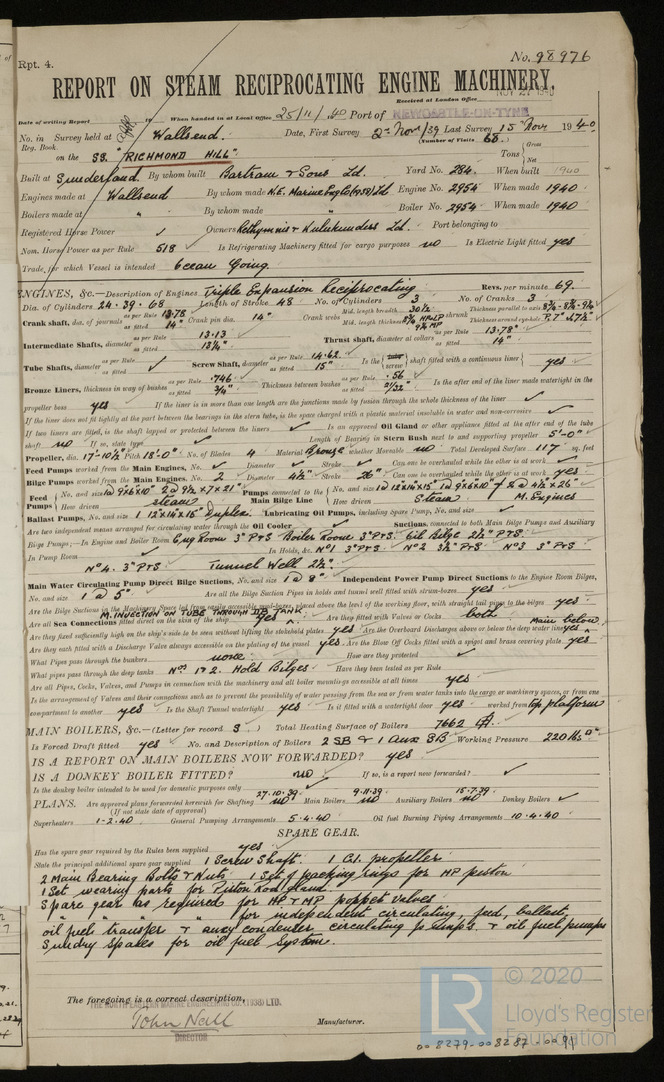 Rpt. 4.
No. 98976
REPORT ON STEAM RECIPROCATING ENGINE MACHINERY.
Received at London Office NOV 27 1940
Date of writing Report 19 When handed in at Local Office 25/11/40 Port of NEWCASTLE-ON-TYNE
No. in Reg. Book Survey held at Wallsend. Date, First Survey 2nd Nov/39 Last Survey 15 Nov 1940
(Number of Visits 68.)
on the SS. "RICHMOND HILL" Tons { Gross Net
Built at Sunderland. By whom built Bartram & Sons Ld. Yard No. 284. When built 1940
Engines made at Wallsend By whom made N.E. Marine Eng Co (1938) Ld Engine No. 2954 When made 1940
Boilers made at " By whom made " Boiler No. 2954 When made 1940
Registered Horse Power ✓ Owners Rethymnis & Kulukundis Ld. Port belonging to
Nom. Horse Power as per Rule 518 Is Refrigerating Machinery fitted for cargo purposes no Is Electric Light fitted yes
Trade, for which Vessel is intended Ocean Going.
ENGINES, &c.—Description of Engines Triple Expansion Reciprocating. Revs. per minute 69.
Dia. of Cylinders 24. 39. 68 Length of Stroke 48 No. of Cylinders 3 No. of Cranks 3
Crank shaft, dia. of journals as per Rule 13.78 as fitted 14" Crank pin dia. 14" Crank webs Mid. length breadth 30½ Mid. length thickness shrunk Thickness parallel to axis Thickness around eye-hole
Intermediate Shafts, diameter as per Rule 13.13 as fitted 13¼" Thrust shaft, diameter at collars as per Rule 13.78" as fitted 14"
Tube Shafts, diameter as per Rule ✓ as fitted Screw Shaft, diameter as per Rule 14.62 as fitted 15" Is the { tube screw } shaft fitted with a continuous liner { yes
Bronze Liners, thickness in way of bushes as per Rule .746 as fitted ¾" Thickness between bushes as per Rule .56 as fitted 21/32" Is the after end of the liner made watertight in the
propeller boss yes If the liner is in more than one length are the junctions made by fusion through the whole thickness of the liner ✓
If the liner does not fit tightly at the part between the bearings in the stern tube, is the space charged with a plastic material insoluble in water and non-corrosive ✓
If two liners are fitted, is the shaft lapped or protected between the liners ✓ Is an approved Oil Gland or other appliance fitted at the after end of the tube
shaft no If so, state type ✓ Length of Bearing in Stern Bush next to and supporting propeller 5'-0"
Propeller, dia. 17'-10½" Pitch 18'-0" No. of Blades 4 Material Bronze whether Moveable no Total Developed Surface 117 sq. feet
Feed Pumps worked from the Main Engines, No. ✓ Diameter ✓ Stroke ✓ Can one be overhauled while the other is at work ✓
Bilge Pumps worked from the Main Engines, No. 2 Diameter 4½" Stroke 26" Can one be overhauled while the other is at work yes
Feed Pumps { No. and size 1@ 9x6x10" 2@ 9½x7x21" How driven steam Pumps connected to the Main Bilge Line { No. and size 1@ 12x14x15" 1@ 9x6x10" & 2@ 4½x26" How driven Steam M. Engines
Ballast Pumps, No. and size 1 12x14x15" Duplex Lubricating Oil Pumps, including Spare Pump, No. and size ✓
Are two independent means arranged for circulating water through the Oil Cooler ✓ Suctions, connected to both Main Bilge Pumps and Auxiliary
Bilge Pumps;—In Engine and Boiler Room Eng Room 3" P&S Boiler Room 3" P&S. Oil Bilge 2½" P&S.
In Pump Room ✓ In Holds, &c. No1 3" P&S No2 3½" P&S No3 3" P&S
No4. 3" P&S Tunnel Well 2½".
Main Water Circulating Pump Direct Bilge Suctions, No. and size 1 @ 8" Independent Power Pump Direct Suctions to the Engine Room Bilges,
No. and size 1 @ 5" Are all the Bilge Suction Pipes in holds and tunnel well fitted with strum-boxes yes
Are the Bilge Suctions in the Machinery Space led from easily accessible mud-boxes, placed above the level of the working floor, with straight tail pipes to the bilges yes
M. INJECTION ON TUBE THROUGH D.B. TANK.
Are all Sea Connections fitted direct on the skin of the ship yes Are they fitted with Valves or Cocks both
Main below
Are they fixed sufficiently high on the ship's side to be seen without lifting the stokehold plates yes Are the Overboard Discharges above or below the deep water line yes
Are they each fitted with a Discharge Valve always accessible on the plating of the vessel yes Are the Blow Off Cocks fitted with a spigot and brass covering plate yes
What Pipes pass through the bunkers none How are they protected ✓
What pipes pass through the deep tanks Nos 1 & 2. Hold Bilges Have they been tested as per Rule
Are all Pipes, Cocks, Valves, and Pumps in connection with the machinery and all boiler mountings accessible at all times yes
Is the arrangement of Valves and their connections such as to prevent the possibility of water passing from the sea or from water tanks into the cargo or machinery spaces, or from one
compartment to another yes Is the Shaft Tunnel watertight yes Is it fitted with a watertight door yes worked from top platform
MAIN BOILERS, &c.—(Letter for record S.) Total Heating Surface of Boilers 7662
Is Forced Draft fitted yes No. and Description of Boilers 2 SB & 1 Aux SB Working Pressure 220 lbs □"
IS A REPORT ON MAIN BOILERS NOW FORWARDED? yes
IS A DONKEY BOILER FITTED? no If so, is a report now forwarded? ✓
Is the donkey boiler intended to be used for domestic purposes only
27.10.39 9.11.39 15.7.39
PLANS. Are approved plans forwarded herewith for Shafting no Main Boilers no Auxiliary Boilers no Donkey Boilers ✓
(If not state date of approval)
Superheaters 1-2-40 General Pumping Arrangements 5-4-40 Oil fuel Burning Piping Arrangements 10-4-40
SPARE GEAR.
Has the spare gear required by the Rules been supplied yes
State the principal additional spare gear supplied 1 Screw Shaft. 1 C.I. propeller
2 Main Bearing Bolts & Nuts 1 Set of packing rings for HP piston
1 Set wearing parts for Piston Rod gland.
Spare gear as required for HP & MP poppet valves.
" " " " for independent circulating, feed, ballast
oil fuel transfer & auxy condenser circulating pumps. & oil fuel pumps
Sundry Spares for oil fuel System.
The foregoing is a correct description,
THE NORTH EASTERN MARINE ENGINEERING CO. (1938) LTD.
John Nall
DIRECTOR
Manufacturer.
© 2020
LR
Lloyd's Register
Foundation
008279-008287-0091